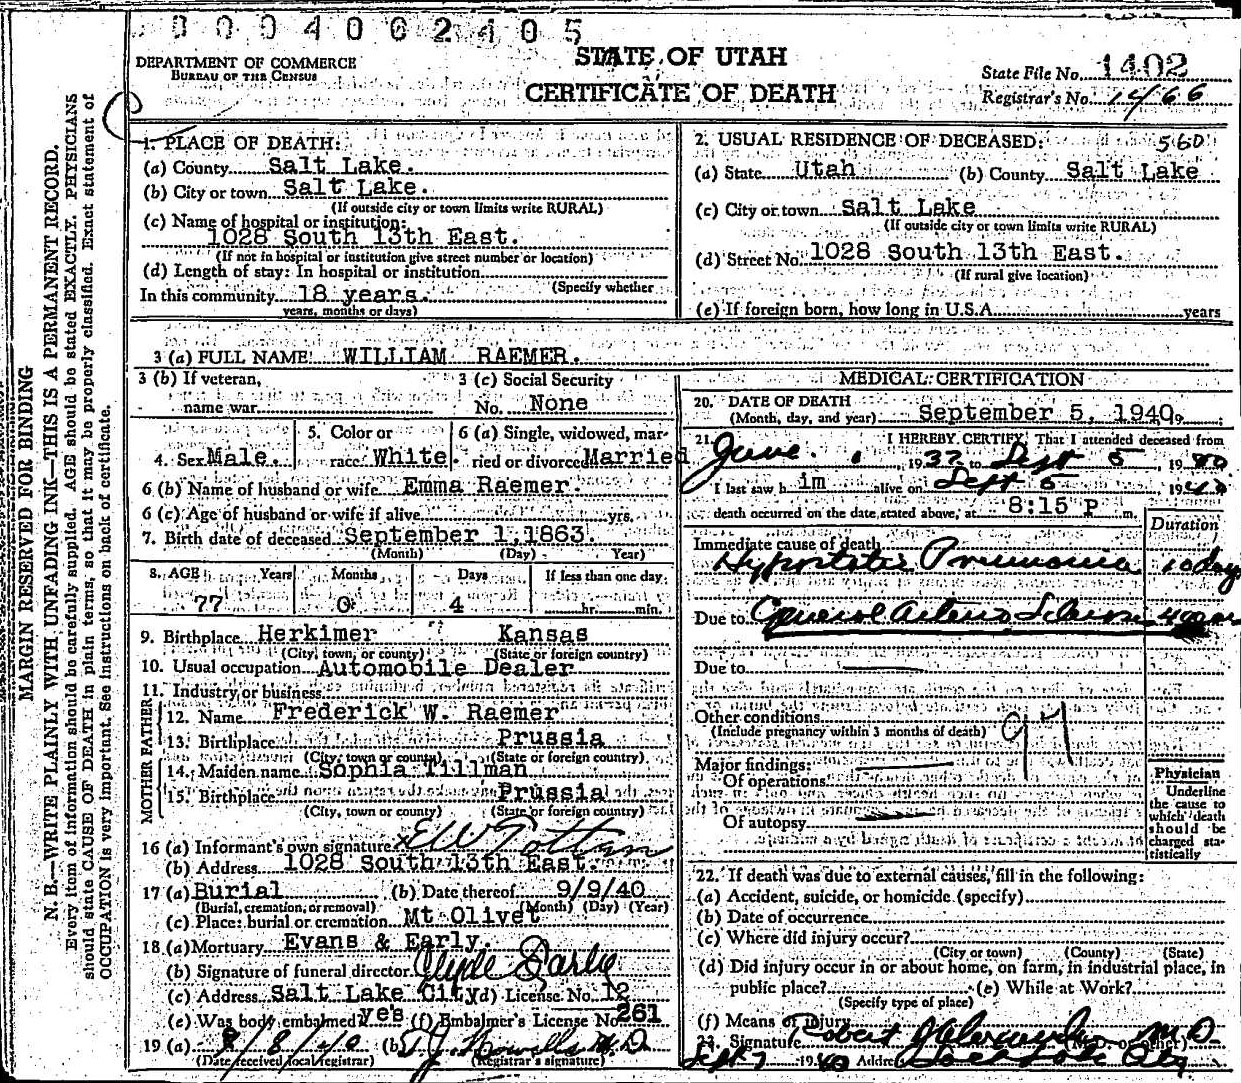 0004062405
DEPARTMENT OF COMMERCE
BUREAU OF THE CENSUS
STATE OF UTAH
CERTIFICATE OF DEATH
State File No. 1402
Registrar's No. 1466
MARGIN RESERVED FOR BINDING
N. B.—WRITE PLAINLY WITH UNFADING INK—THIS IS A PERMANENT RECORD.
Every item of information should be carefully supplied. AGE should be stated EXACTLY. PHYSICIANS
should state CAUSE OF DEATH in plain terms, so that it may be properly classified. Exact statement of
OCCUPATION is very important. See instructions on back of certificate.
1. PLACE OF DEATH:
(a) County Salt Lake.
(b) City or town Salt Lake.
(If outside city or town limits write RURAL)
(c) Name of hospital or institution:
1028 South 13th East.
(If not in hospital or institution give street number or location)
(d) Length of stay: In hospital or institution
(Specify whether
In this community 18 years.
years, months or days)
2. USUAL RESIDENCE OF DECEASED: 560
(a) State Utah (b) County Salt Lake
(c) City or town Salt Lake
(If outside city or town limits write RURAL)
(d) Street No. 1028 South 13th East.
(If rural give location)
(e) If foreign born, how long in U.S.A. years
3 (a) FULL NAME WILLIAM RAEMER.
3 (b) If veteran,
name war
3 (c) Social Security
No. None
4. Sex Male.
5. Color or
race White.
6 (a) Single, widowed, mar-
ried or divorced Married
6 (b) Name of husband or wife Emma Raemer.
6 (c) Age of husband or wife if alive yrs.
7. Birth date of deceased September 1, 1863.
(Month) (Day) Year)
8. AGE Years Months Days If less than one day
77 0 4 hr. min.
9. Birthplace Herkimer Kansas
(City, town, or county) (State or foreign country)
10. Usual occupation Automobile Dealer
11. Industry or business
FATHER
12. Name Frederick W. Raemer
13. Birthplace Prussia
(City, town or county) (State or foreign country)
MOTHER
14. Maiden name Sophia Tillman
15. Birthplace Prussia
(City, town or county) (State or foreign country)
16 (a) Informant's own signature E W
(b) Address 1028 South 13th East.
17 (a) Burial (b) Date thereof 9/9/40
(Burial, cremation, or removal) (Month) (Day) (Year)
(c) Place: burial or cremation Mt Olivet
18 (a) Mortuary Evans & Early.
(b) Signature of funeral director Clyde Early
(c) Address Salt Lake City (d) License No. 12
(e) Was body embalmed yes (f) Embalmer's License No. 261
19 (a) 9/8/40 (b) M D
(Date received local registrar) (Registrar's signature)
MEDICAL CERTIFICATION
20. DATE OF DEATH
(Month, day, and year) September 5, 1940.
21. I HEREBY CERTIFY, That I attended deceased from
June 1937 to Sept 5, 1940
I last saw him alive on Sept 5 1940
death occurred on the date stated above, at 8:15 P m.
Duration
Immediate cause of death
Hypostatic Pneumonia 10 days
Due to General Arterio Sclerosis
Due to
Other conditions
(Include pregnancy within 3 months of death) 97
Major findings:
Of operations
Of autopsy
Physician
Underline
the cause to
which death
should be
charged sta-
tistically
22. If death was due to external causes, fill in the following:
(a) Accident, suicide, or homicide (specify)
(b) Date of occurrence
(c) Where did injury occur?
(City or town) (County) (State)
(d) Did injury occur in or about home, on farm, in industrial place, in
public place? (e) While at Work?
(Specify type of place)
(f) Means of Injury
23. Signature Robert M D (M. D. or other)
Sept 7 1940 Address Salt Lake City